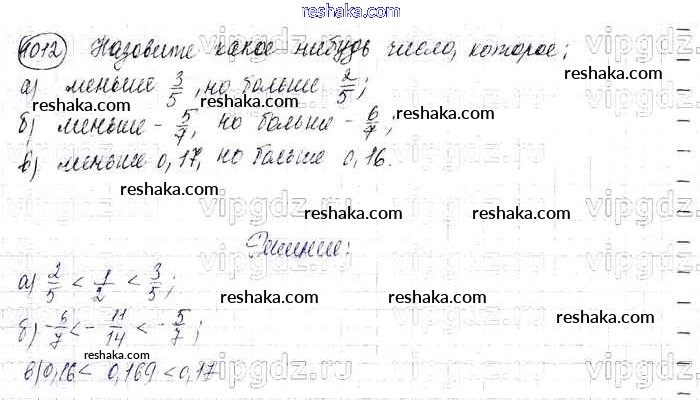 reshaka.com
1012 Назовите какое-нибудь число, которое;
а) меньше 3/5, но больше 2/5;
reshaka.com reshaka.com reshaka.com
б) меньше -5/7, но больше -6/7;
reshaka.com
в) меньше 0,17, но больше 0,16.
vipgdz.ru vipgdz.ru vipgdz.ru
reshaka.com reshaka.com
vipgdz.ru vipgdz.ru vipgdz.ru
Решение:
reshaka.com
а) 2/5 < 1/2 < 3/5;
reshaka.com reshaka.com
б) -6/7 < -11/14 < -5/7;
reshaka.com reshaka.com
reshaka.com
в) 0,16 < 0,169 < 0,17
vipgdz.ru vipgdz.ru vipgdz.ru